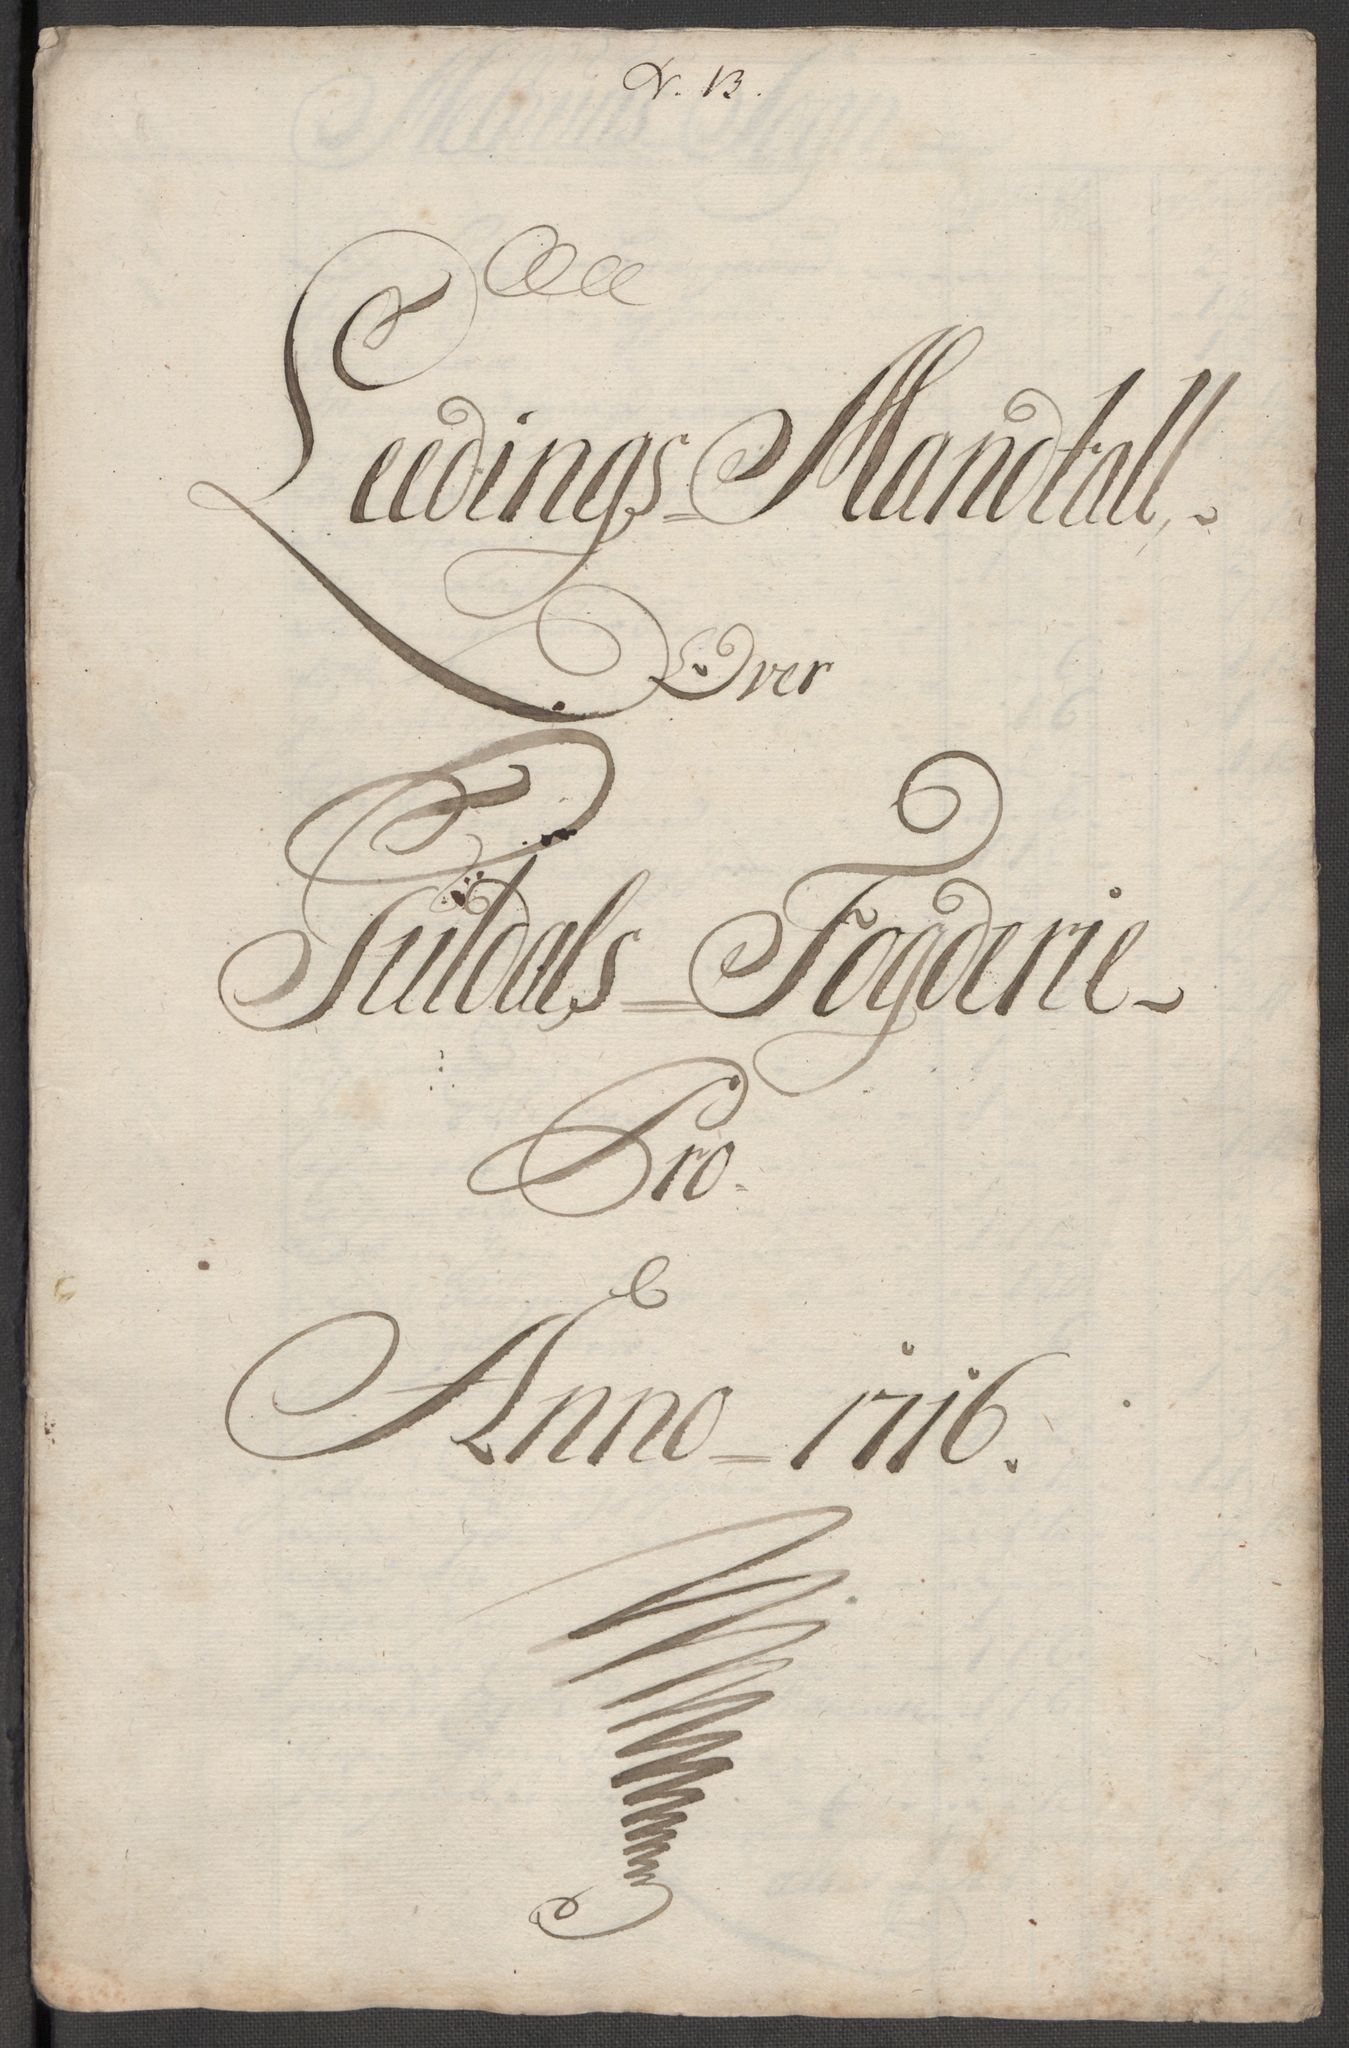 N. 13.
Leedings = Mandtall,
Over
Fuldals = Fogderie
Pro
Anno = 1716.